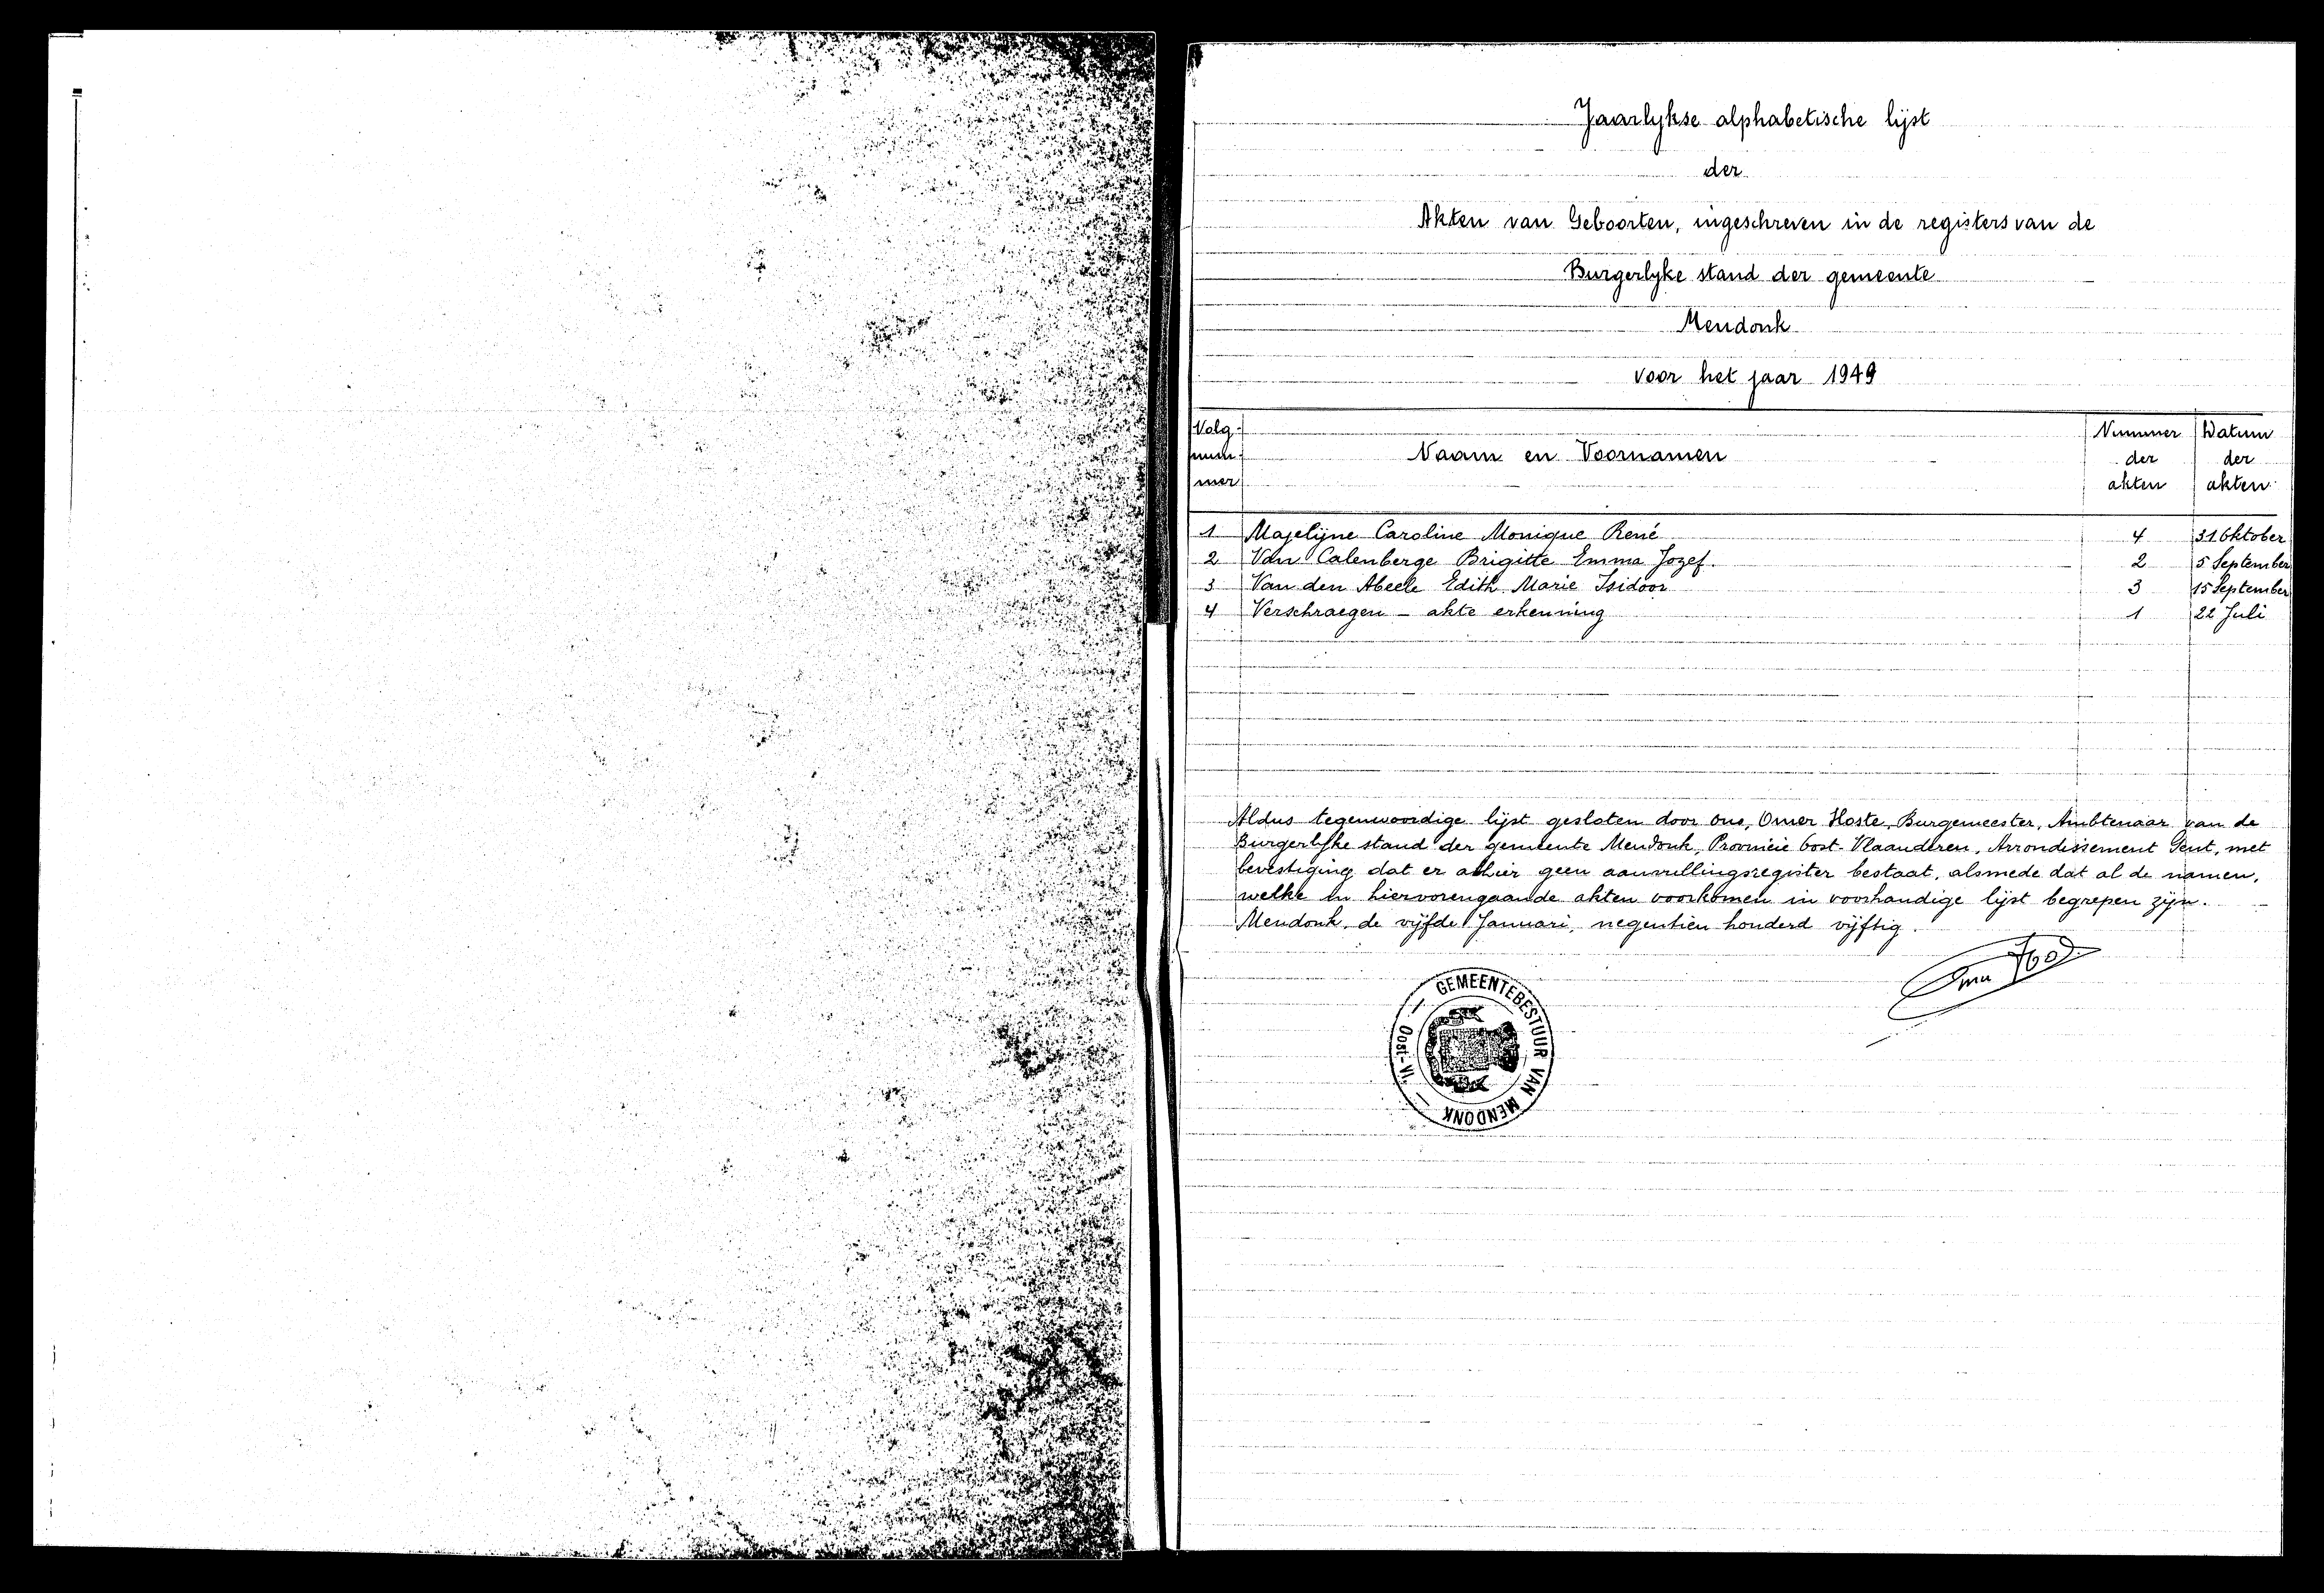 Jaarlykse alphabetische lijst
der
Akten van Geboorten, ingeschreven in de registers van de
Burgerlyke stand der gemeente
Mendonk
voor het jaar 1949
Volg- Nummer Datum
num- Naam en Voornamen der der
mer akten akten
1 Majelijne Caroline Monique René 4 31 Oktober
2 Van Calenberge Brigitte Emma Jozef. 2 5 September
3 Van den Abeele Edith Marie Isidoor 3 15 September
4 Verschraegen - akte erkenning 1 22 Juli
Aldus tegenwoordige lijst gesloten door ons, Omer Hoste, Burgemeester, Ambtenaar van de
Burgerlijke stand der gemeente Mendonk, Provincie Oost-Vlaanderen, Arrondissement Gent, met
bevestiging dat er alhier geen aanvullingsregister bestaat, alsmede dat al de namen,
welke in hiervorengaande akten voorkomen in voorhandige lijst begrepen zijn.
Mendonk, de vijfde Januari, negentien honderd vijftig.
GEMEENTEBESTUUR VAN MENDONK — Oost-Vl. —